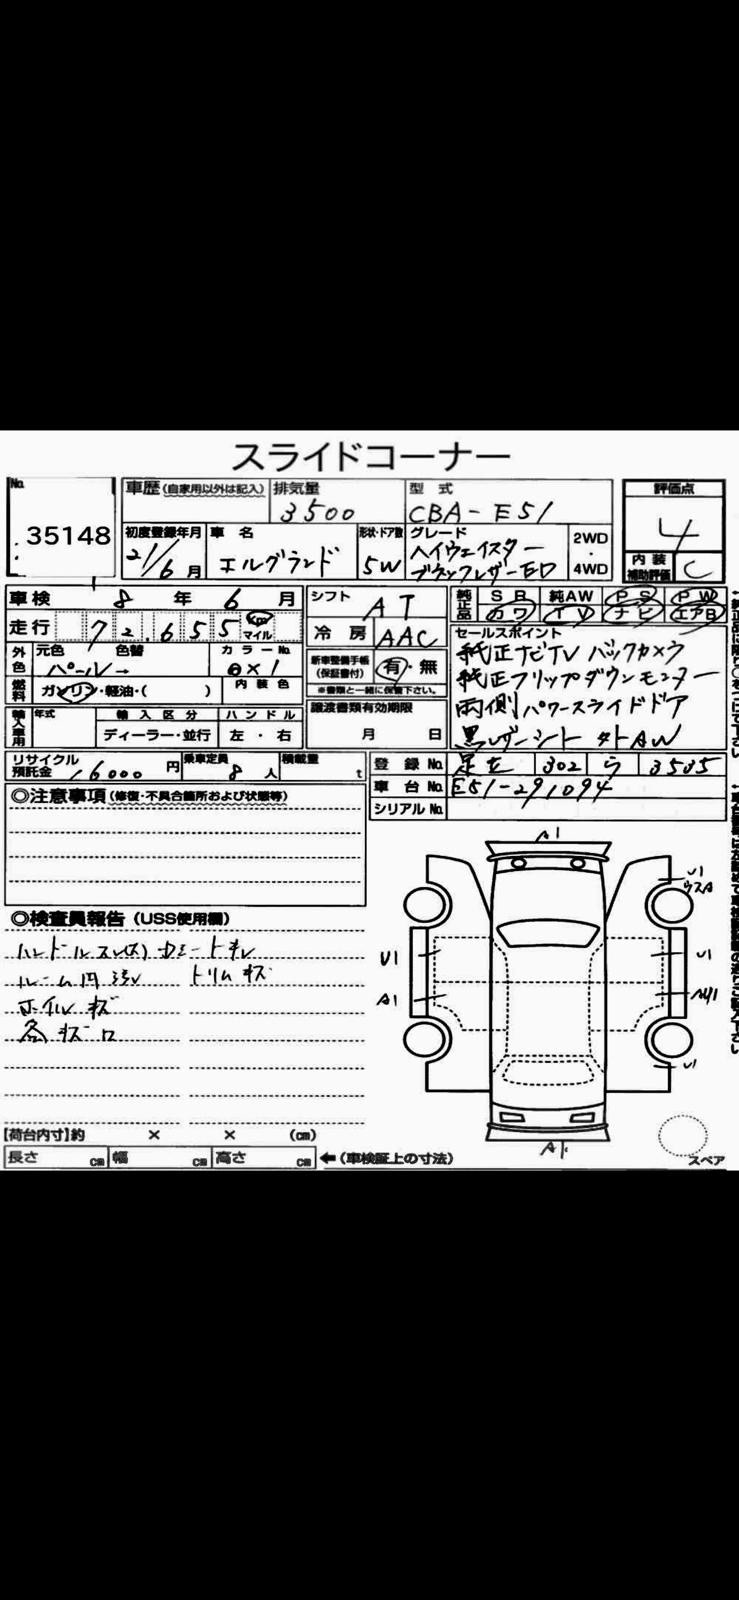 スライドコーナー
No.
35148
車歴(自家用以外は記入) 排気量 型式
3500 CBA-E51
評価点
4
内装補助評価 C
初度登録年月 車名 形状・ドア数 グレード 2WD・4WD
21/6月 エルグランド 5W ハイウェイスター
ブラックレザーED
車検 8年 6月
シフト AT
純正品 SR 純AW PS PW
カワ TV ナビ エアB
走行 72,655 Km マイル
冷房 AAC
セールスポイント
純正ナビTV バックカメラ
純正フリップダウンモニター
両側パワースライドドア
黒レザーシート 外AW
外色 元色 色替 カラーNo.
パール→ QX1
新車整備手帳(保証書付) 有・無
※書類と一緒に保管下さい。
燃料 ガソリン・軽油・( ) 内装色
譲渡書類有効期限
月 日
輸入車用 年式 輸入区分 ハンドル
ディーラー・並行 左・右
リサイクル預託金 16000円 乗車定員 8人 積載量 t
登録No. 足立 302 ら 3535
車台No. E51-291094
シリアルNo.
◎注意事項(修復・不具合箇所および状態等)
◎検査員報告(USS使用欄)
ハンドルスレ
ルーム内汚れ トリムキズ
ホイルキズ
各キズ
A1
U1
ウスA
U1 U1
A1 AU1
U1
スペア
【荷台内寸】約 × × (cm)
長さ cm 幅 cm 高さ cm ←(車検証上の寸法)